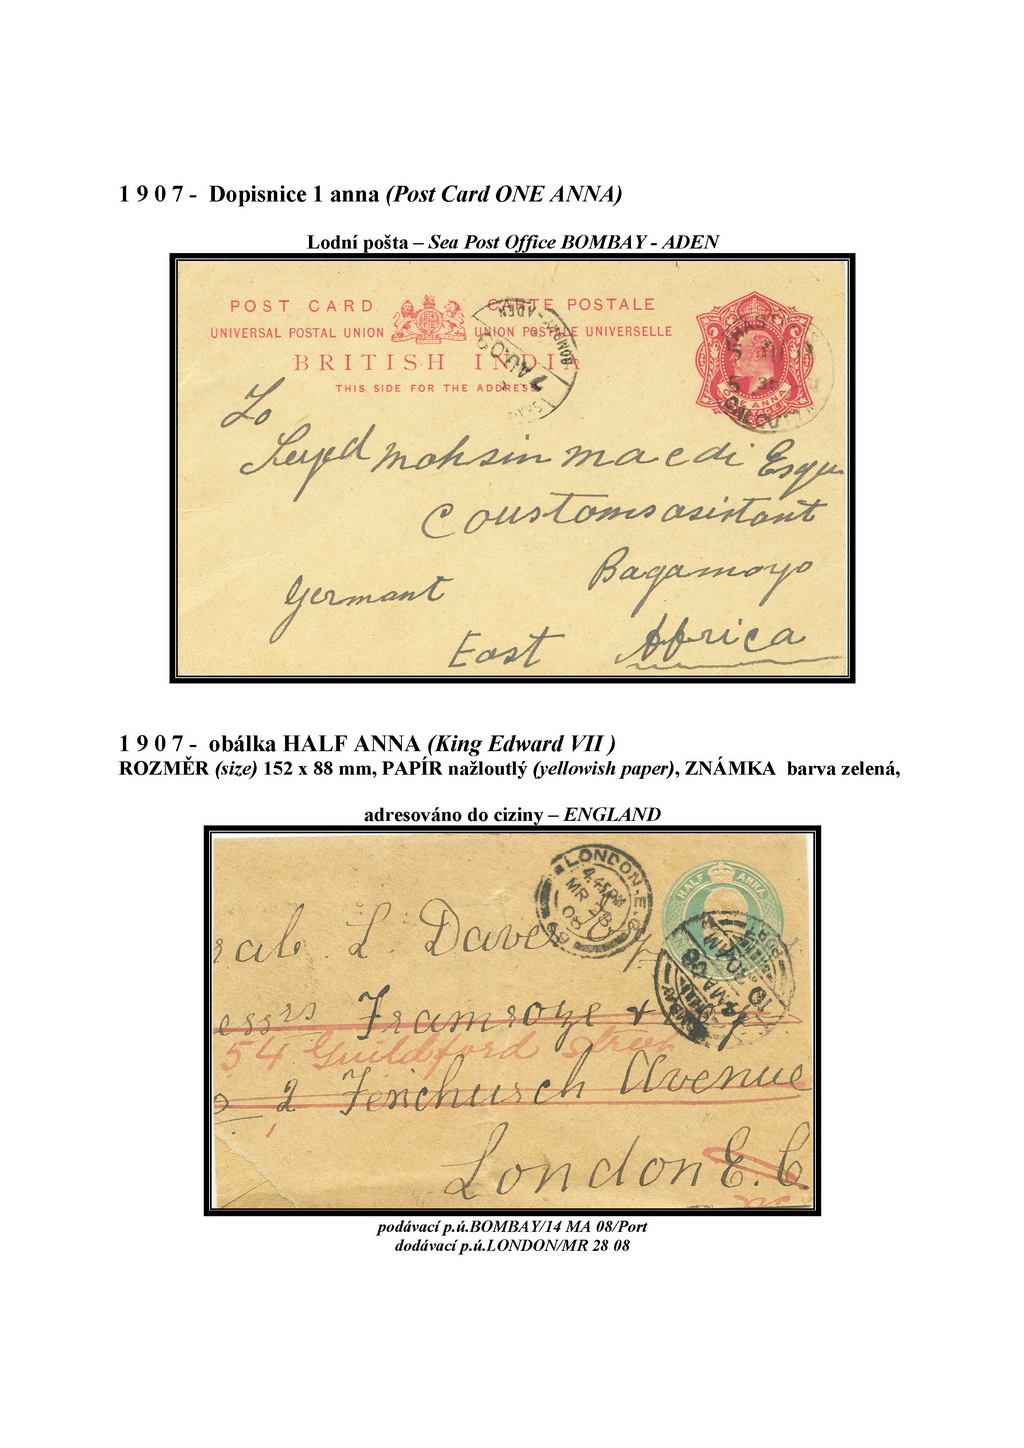 1 9 0 7 - Dopisnice 1 anna (Post Card ONE ANNA)
Lodní pošta – Sea Post Office BOMBAY - ADEN
POST CARD CARTE POSTALE
UNIVERSAL POSTAL UNION UNION POSTALE UNIVERSELLE
BRITISH INDIA
THIS SIDE FOR THE ADDRESS
BOMBAY - ADEN
7 AU 09
ONE ANNA
CALCUTTA
To
Seyed mohsin macdi Esqu
Coustoms asistant
Bagamoyo
Germant
East Africa
1 9 0 7 - obálka HALF ANNA (King Edward VII )
ROZMĚR (size) 152 x 88 mm, PAPÍR nažloutlý (yellowish paper), ZNÁMKA barva zelená,
adresováno do ciziny – ENGLAND
LONDON. E.C
4.45PM
MR 28
08
HALF ANNA
BOMBAY
14 MA 08
L. Daver
essrs Framroze &
54 Guildford Street
2 Fenchurch Avenue
London E.C.
podávací p.ú.BOMBAY/14 MA 08/Port
dodávací p.ú.LONDON/MR 28 08